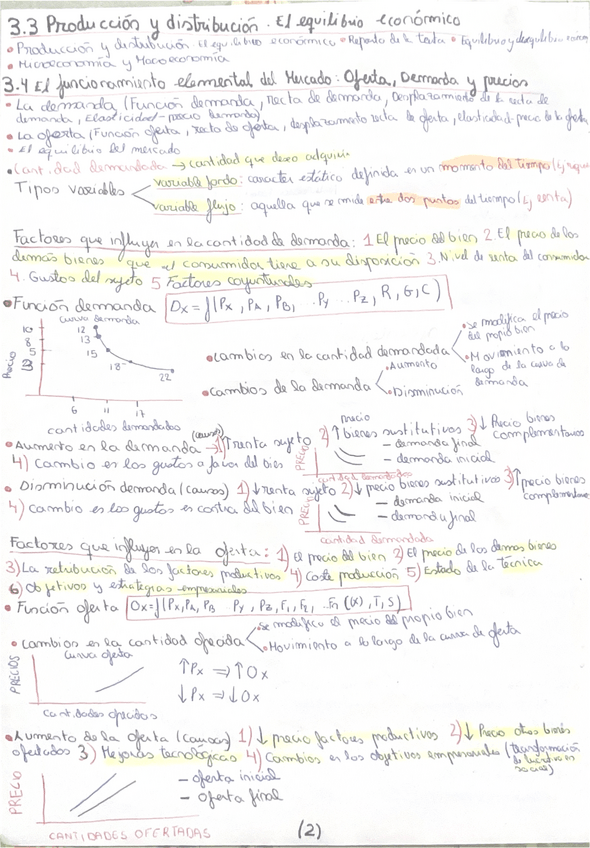 3.3 Producción y distribución. El equilibrio económico
• Producción y distribución El equilibrio económico • Reparto de la tarta • Equilibrio y desequilibrio econom
• Microeconomía y Macroeconomía
3.4 El funcionamiento elemental del Mercado: Oferta, Demanda y precios
• La demanda (Función demanda, recta de demanda, Desplazamiento de la recta de
demanda, Elasticidad-precio demanda)
• La oferta (Función oferta, recta de oferta, desplazamiento recta de oferta, elasticidad-precio de la oferta
• El equilibrio del mercado
• Cantidad demandada → cantidad que deseo adquirir
Tipos variables
variable fondo: caracter estático definida en un momento del tiempo
variable flujo: aquella que se mide entre dos puntos del tiempo (↳ renta)
Factores que influyen en la cantidad de demanda: 1 El precio del bien 2. El precio de los
demás bienes que el consumidor tiene a su disposición 3. Nivel de renta del consumidor
4. Gustos del sujeto 5 Factores coyunturales
• Función demanda Dx = f(Px, PA, PB, ..Py ... Pz, R, G, C)
curva demanda
Precio
10
8
5
12
13
15
18
22
6 11 17
cantidades demandadas
• cambios en la cantidad demandada
• se modifica el precio
del propio bien
• Movimiento a lo
largo de la curva de
demanda
• cambios de la demanda
Aumento
Disminución
• Aumento en la demanda (causas) → 1) ↑ renta sujeto 2) ↑ precio bienes sustitutivos 3) ↓ Precio bienes
complementarios
4) Cambio en los gustos a favor del bien
PRECIO
- demanda final
- demanda inicial
cantidad demandada
• Disminución demanda (causas) 1) ↓ renta sujeto 2) ↓ precio bienes sustitutivos 3) ↑ precio bienes
complementar
4) cambio en los gustos en contra del bien
PRECIO
- demanda inicial
- demanda final
cantidad demandada
Factores que influyen en la oferta: 1) El precio del bien 2) El precio de los demas bienes
3) La retribución de los factores productivos 4) Coste producción 5) Estado de la técnica
6) Objetivos y estrategias empresariales
• Función oferta Ox = f(Px, PA, PB .. Py .. Pz, F1, F2, ..Fn (x), T, S)
• cambios en la cantidad ofrecida
• se modifica el precio del propio bien
• Movimiento a lo largo de la curva de oferta
PRECIOS
Curva oferta
cantidades ofrecidas
↑Px ⇒ ↑Ox
↓Px ⇒ ↓Ox
• Aumento de la oferta (causas) 1) ↓ precio factores productivos 2) ↓ Precio otros bienes
ofertados 3) Mejoras tecnológicas 4) Cambios en los objetivos empresariales (transformación
PRECIO
- oferta inicial
- oferta final
CANTIDADES OFERTADAS
(2)